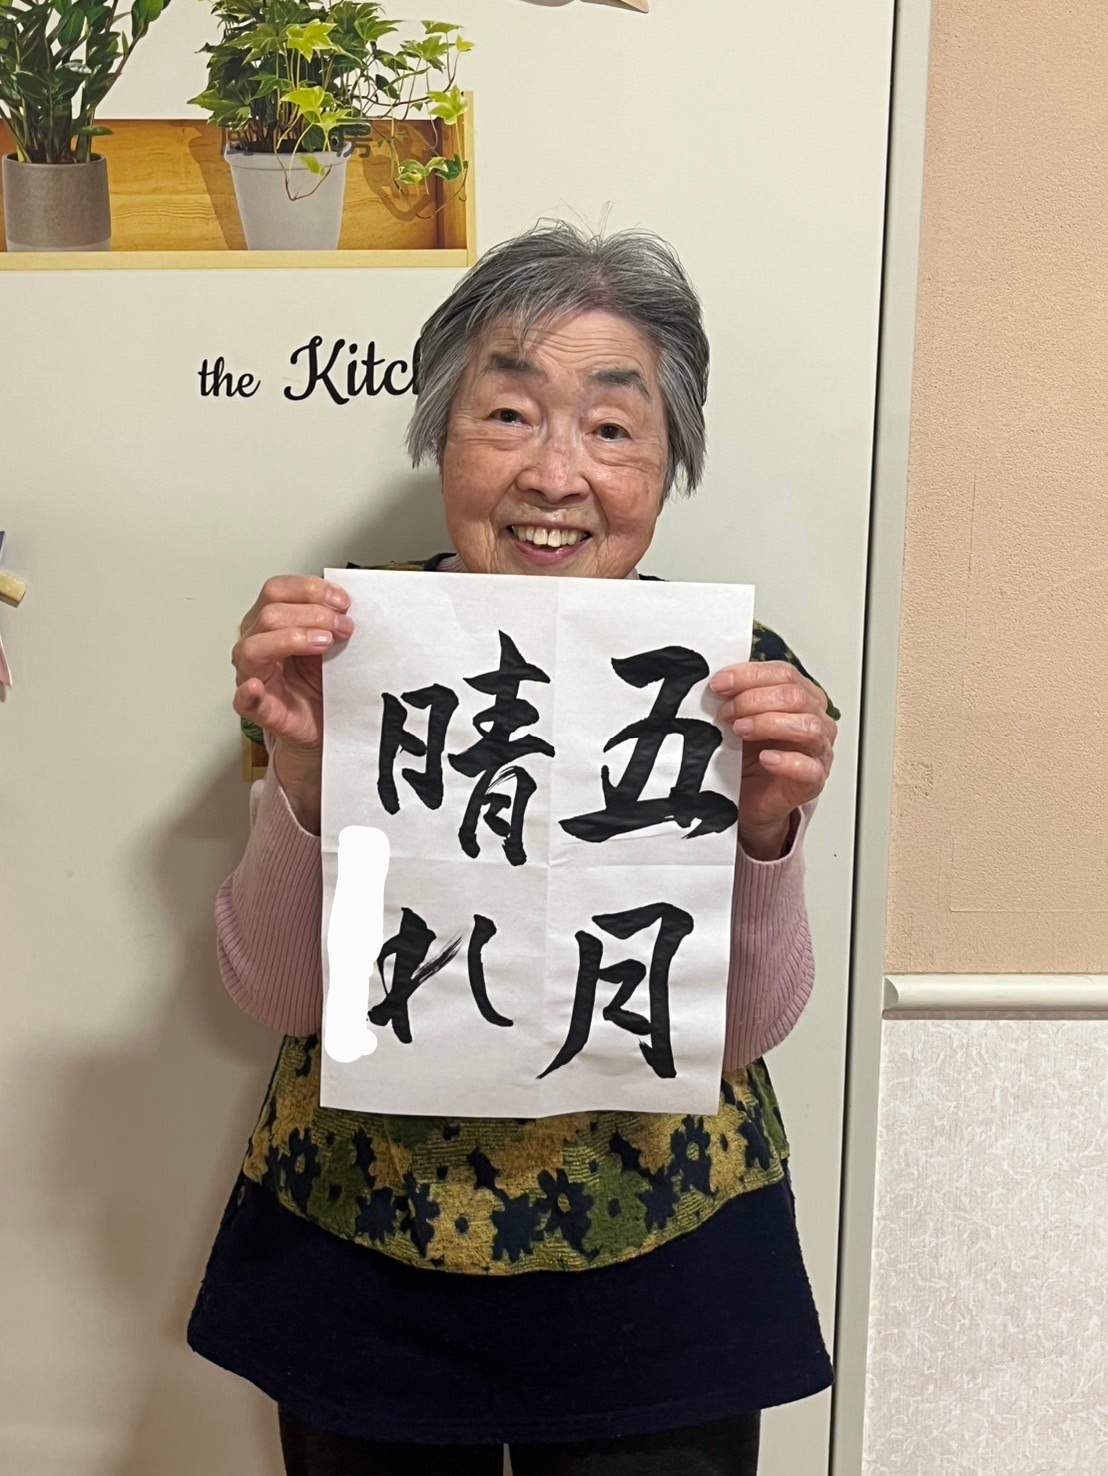 房
the Kitc
五月
晴れ